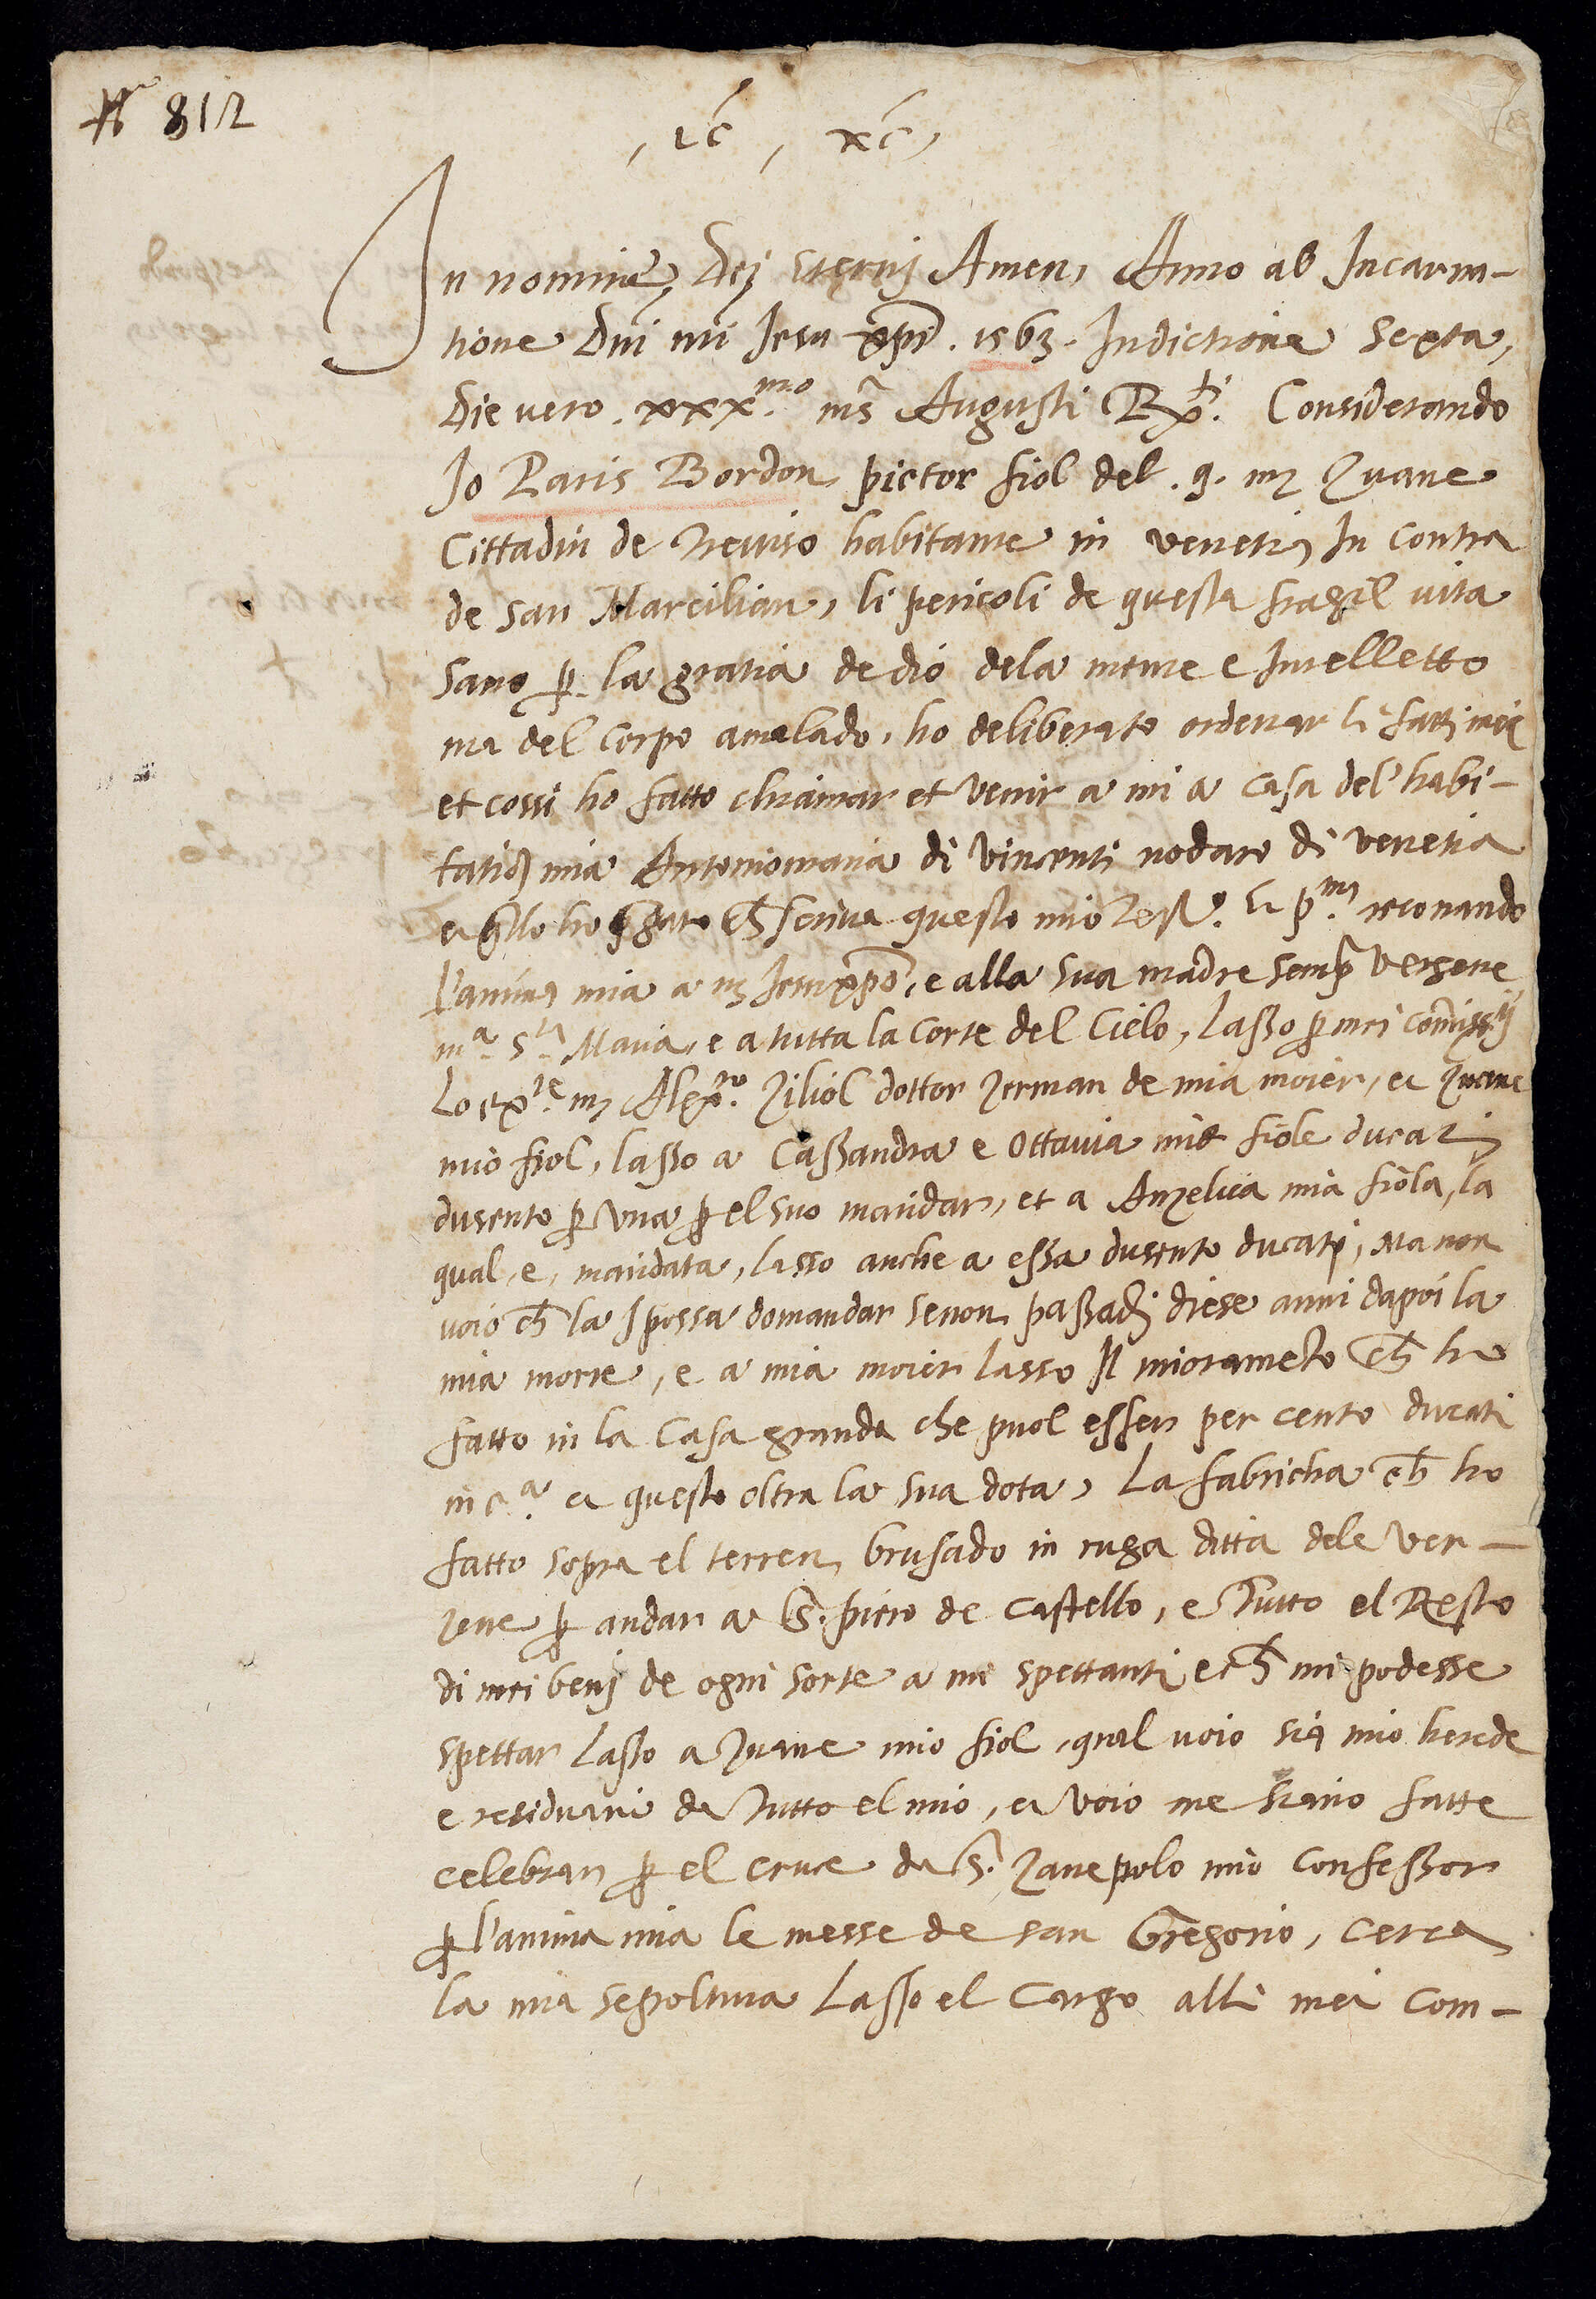 N° 812
, ic , xc ,
In nomine Dej eternj Amen, Anno ab Incarna-
tione Dni nri Jesu xpi. 1563. Indictione sexta,
die vero. xxx.mo ms Augusti Rti. Considerando
Jo Paris Bordon pictor fiol del. q. mz Zuane
Cittadin de Treviso habitante in venetia In contra
de san Marcilian, li pericoli de questa fragil vita
sano p la gratia de dio dela mente e Intelletto
ma del corpo amalado, ho deliberato ordenar li fatti miei
et cossi ho fatto chiamar et venir a mi a casa del'habi-
tation mia Antoniomaria di vincenti nodaro di venetia
et qllo ho pgato ch scriva questo mio Testo. et pma reconando
l'anima mia a mz Jesu xpo, e alla sua madre semp vergene
ma. sta. Maria, e a tutta la corte del Cielo, lasso p mei comissrij
Lo exte. mz Alexro. Ziliol dottor zerman de mia moier, et Zuane
mio fiol, lasso a Cassandra e Ottavia mie fiole ducati
dusento p una p el suo maridar, et a Anzelica mia fiola, la
qual, e, maridata, lasso anche a essa dusento ducati, Ma non
voio ch la I possa domandar se non passadi diese anni dapoi la
mia morte, e a mia moier lasso Il miorameto ch ho
fatto in la casa granda che puol esser per cento ducati
in ca. et questo oltra la sua dota, La fabricha ch ho
fatto sopra el terren brusado in ruga ditta dele ver-
zene p andar a S. piero de castello, e Tutto el Resto
di mei benj de ogni sorte a me spettanti e ch mi podesse
spettar lasso a Zuane mio fiol, qual voio sia mio herede
e residuario de Tutto el mio, et voio me siano fatte
celebrar p el cruce da S. Zanepolo mio confessor
p l'anima mia le messe de san Gregorio, cerca
la mia sepoltura Lasso el cargo alli mei com-